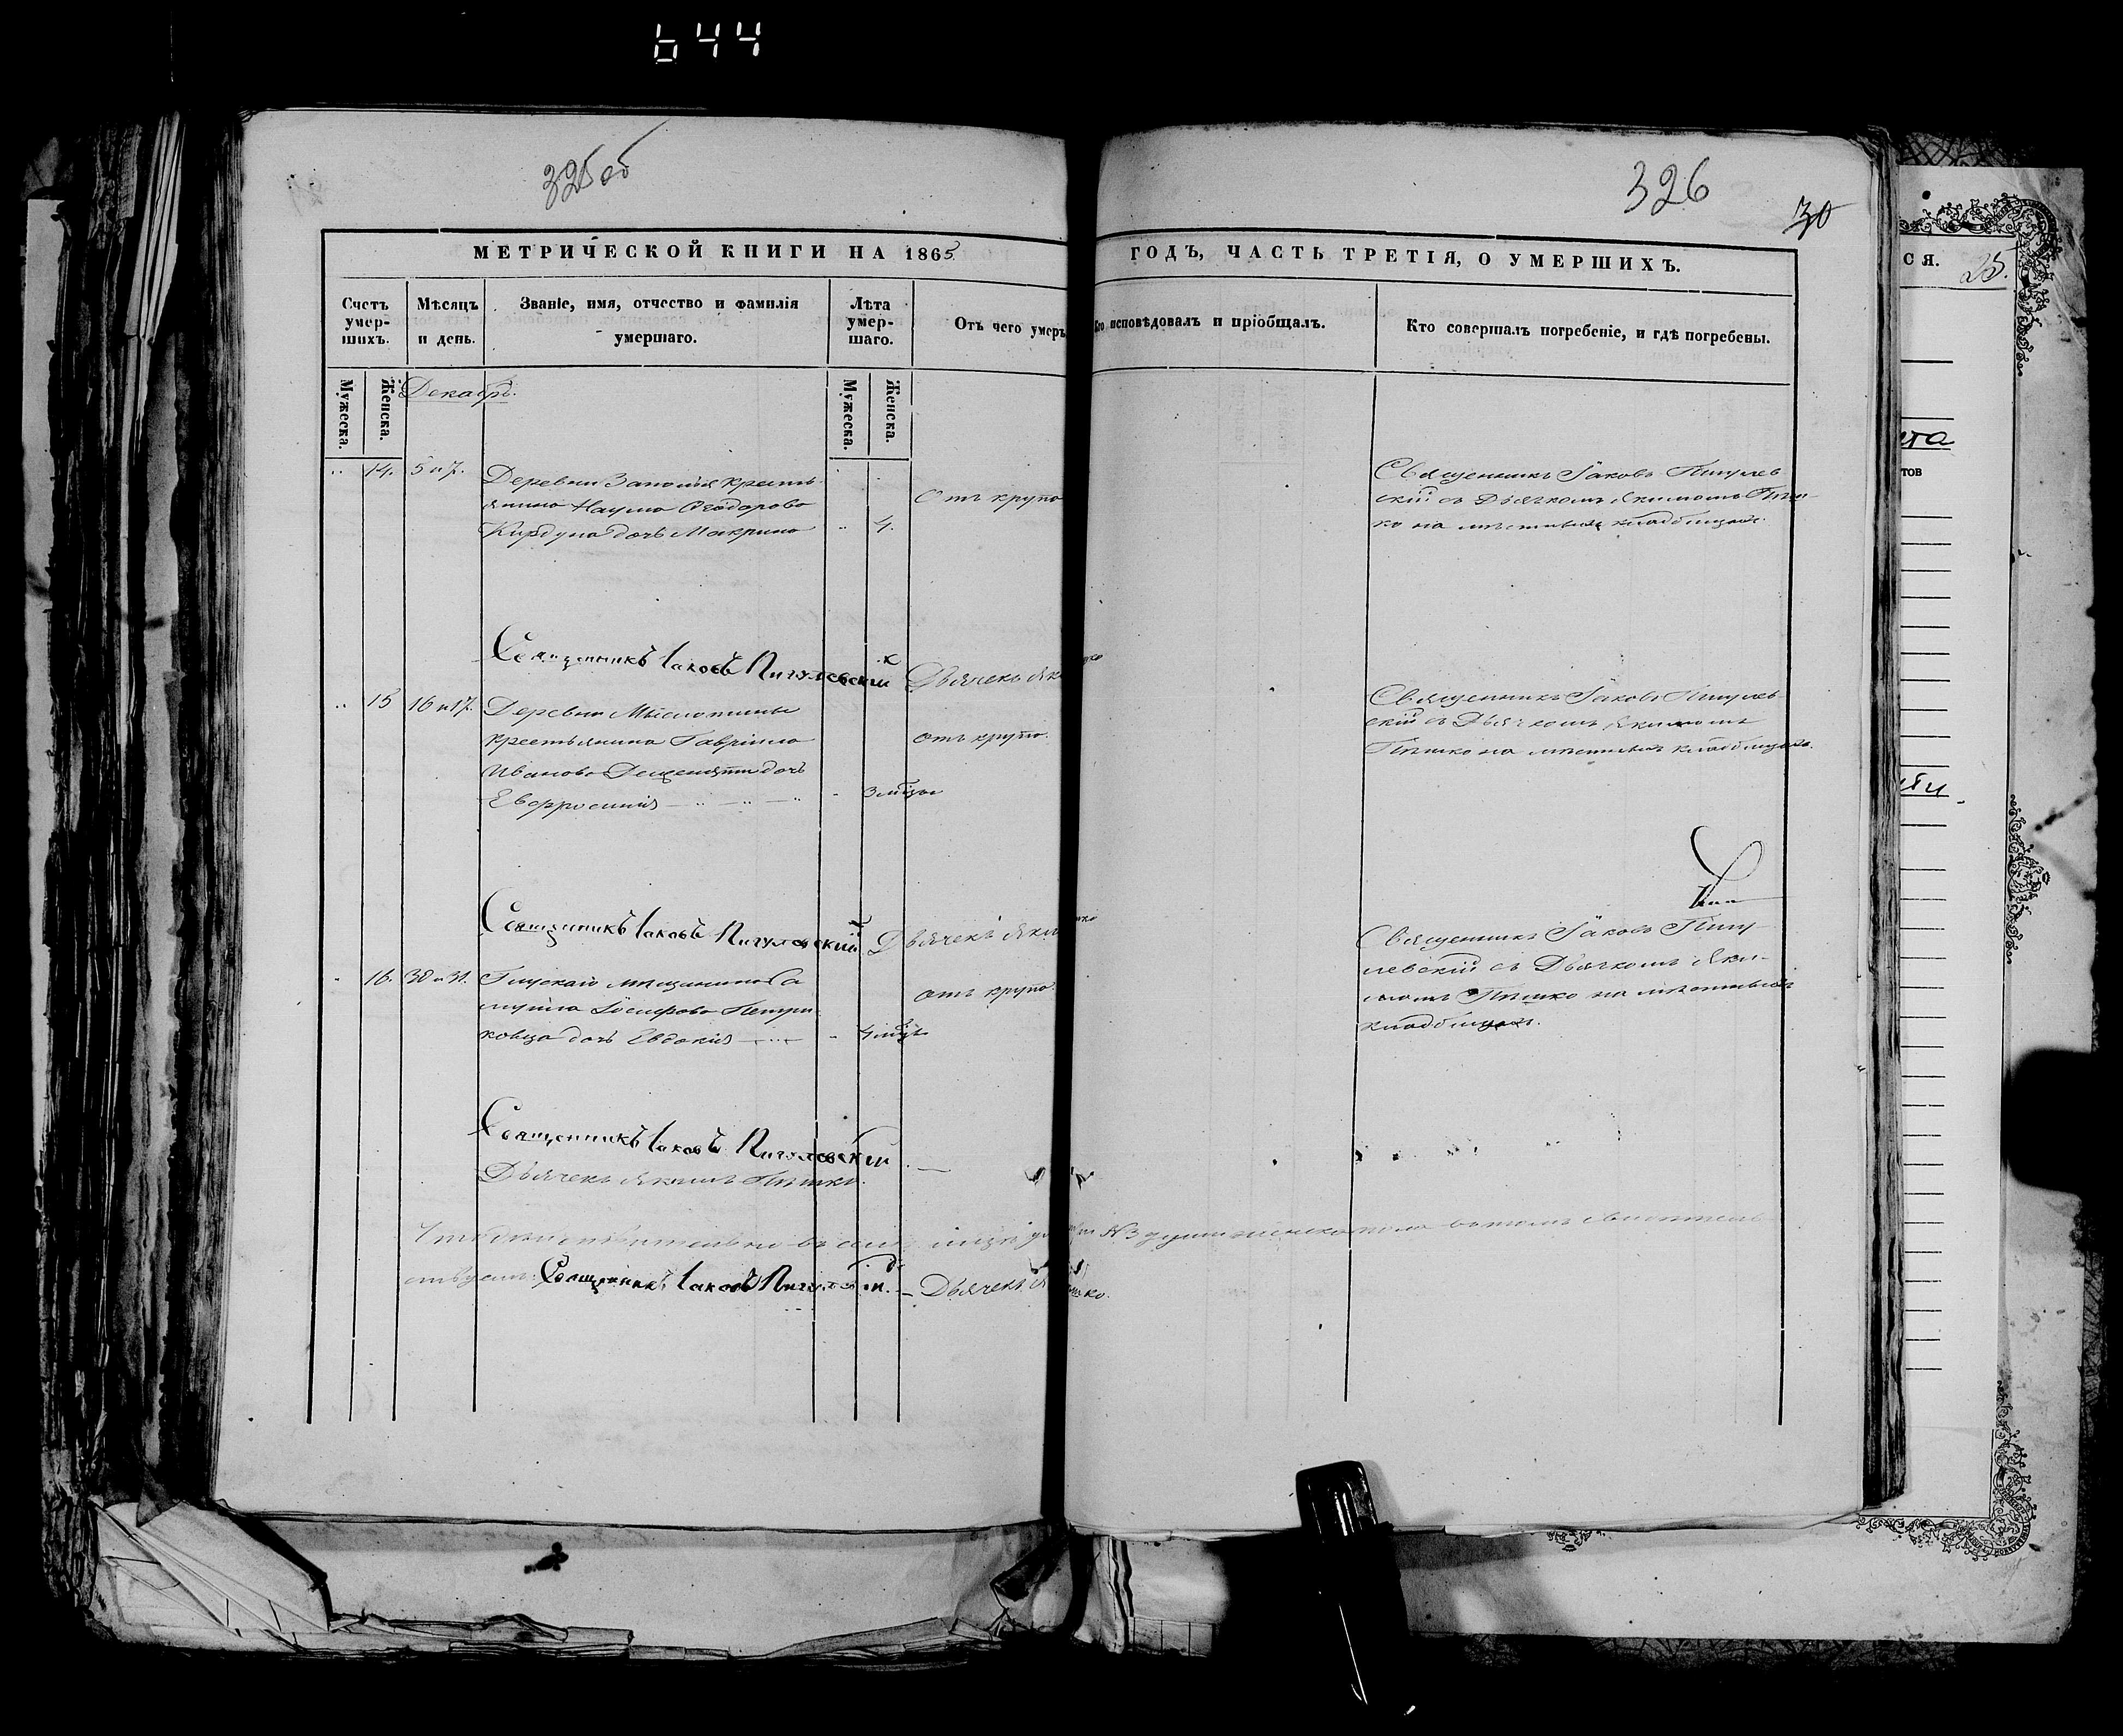 644
325 об
326
30
МЕТРИЧЕСКОЙ КНИГИ НА 1865
ГОДЪ, ЧАСТЬ ТРЕТІЯ, О УМЕРШИХЪ.
Счетъ умер-шихъ.
Мѣсяцъ и день.
Званіе, имя, отчество и фамилія умершаго.
Лѣта умер-шаго.
Отъ чего умеръ
Кто исповѣдовалъ и пріобщалъ.
Кто совершалъ погребеніе, и гдѣ погребены.
Мужеска.
Женска.
Декабрь.
Мужеска.
Женска.
14. 5 и 7.
Деревни Заполья кресть-
янина Наума Ѳеодорова
Кирдуна дочь Макрина
4.
Отъ крупа
Священникъ Іаковъ Пигулев
скій съ Дьячкомъ Якимомъ Пѣш-
ко на мѣстныхъ кладбищахъ.
Священникъ Іаковъ Пигулевскій
Дьячекъ Як
15 16 и 17.
Деревни
крестьянина Гавріила
Иванова дочь
Евфросинія
3 мѣсяца
отъ крупа.
Священникъ Іаковъ Пигулев
скій съ Дьячкомъ Якимомъ
Пѣшко на мѣстныхъ кладбищахъ.
Священникъ Іаковъ Пигулевскій
Дьячекъ Яким
16. 30 и 31.
Глускаго мѣщанина Са
муила Іосифова Петри
ковца дочь Евдокія
4 мѣсц
отъ крупа.
Священникъ Іаковъ Пигу-
левскій съ Дьячкомъ Яки-
момъ Пѣшко на мѣстныхъ
кладбищахъ.
Священникъ Іаковъ Пигулевскій
Дьячекъ Якимъ Пѣшко.
Что дѣйствительно въ семъ мцѣ № 3 души женска пола въ томъ свидѣтель
ствуемъ: Священникъ Іаковъ Пигулевскій. Дьячекъ
СЯ.
25.
та
тов